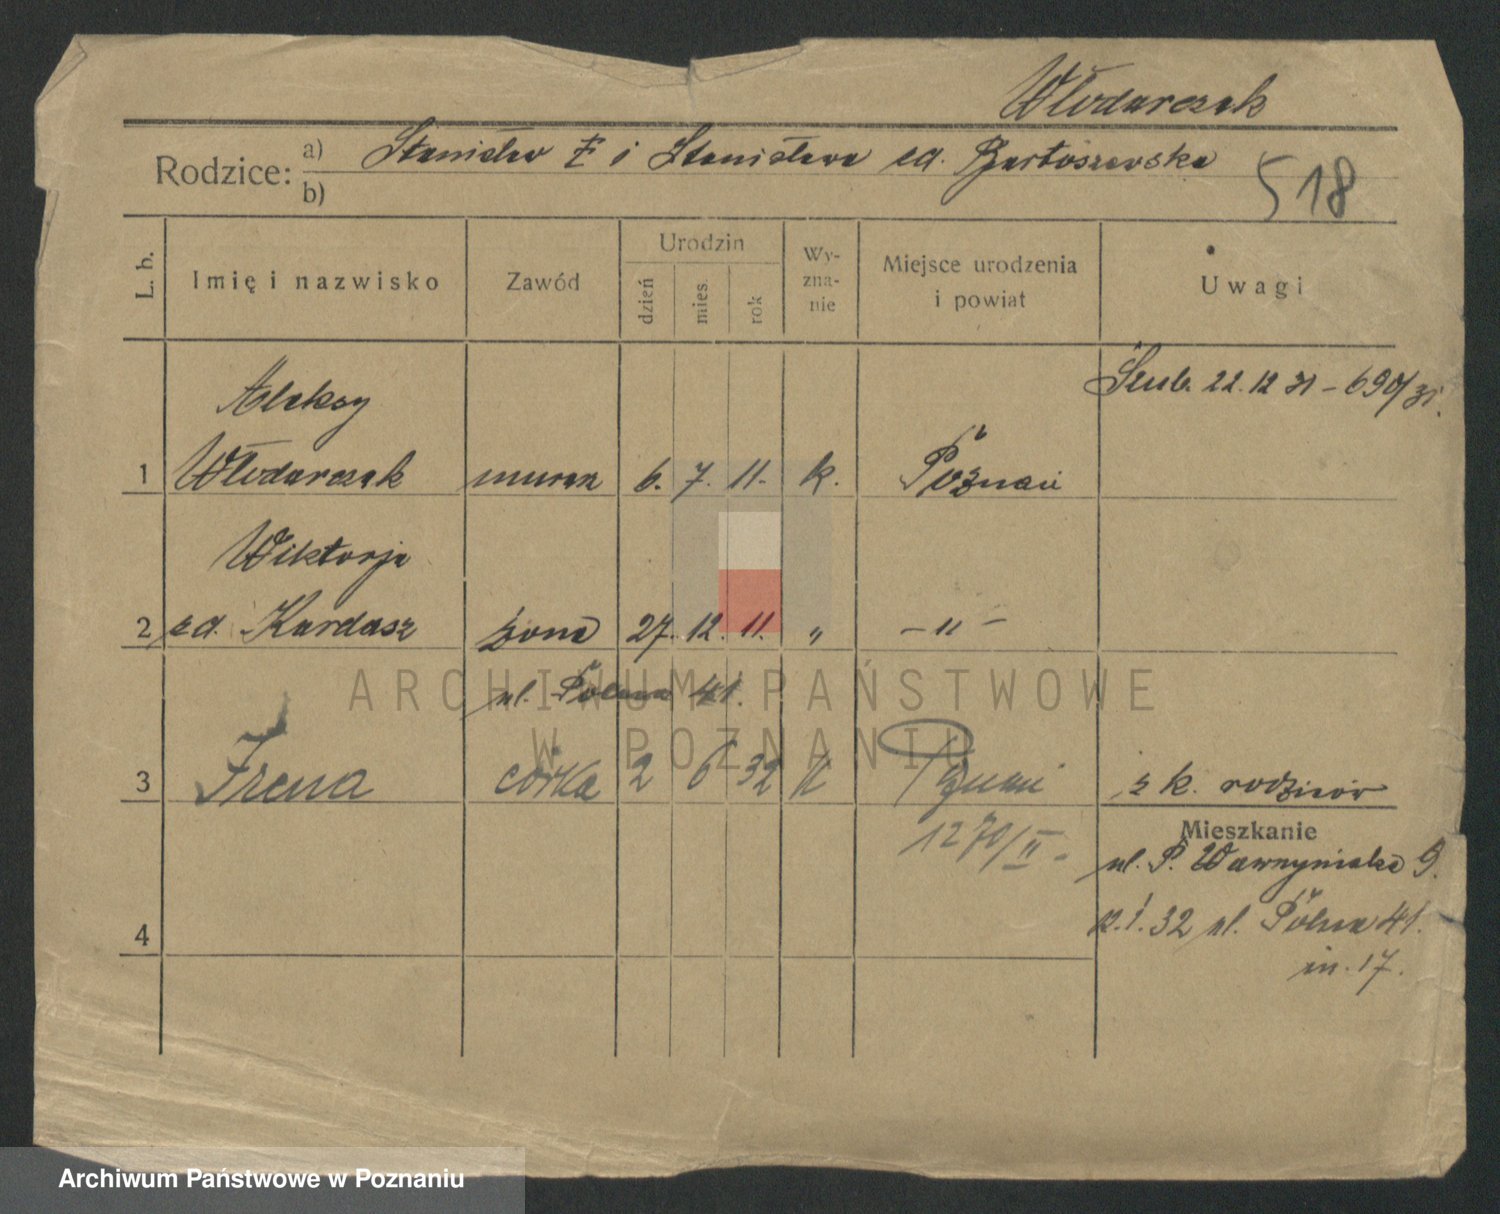 Włodarczak
Rodzice: a) Stanisław i Stanisława zd. Bartoszewska
b)
518
L. b.
Imię i nazwisko
Zawód
Urodzin
dzień
mies.
rok
Wy-
zna-
nie
Miejsce urodzenia
i powiat
Uwagi
Aleksy
Ślub. 22.12 31 – 690/31.
1 Włodarczak murarz 6. 7. 11. k. Poznań
Wiktorja
2 zd. Kardasz żona 27. 12. 11. " – " –
ul. Polna 41.
3 Irena córka 2 6 32 k z k. rodziców
1270/II –
Mieszkanie
ul. P. Wawrzyniaka 9.
12.1.32 ul. Polna 41.
m. 17.
4
ARCHIWUM PAŃSTWOWE
W POZNANIU
Archiwum Państwowe w Poznaniu